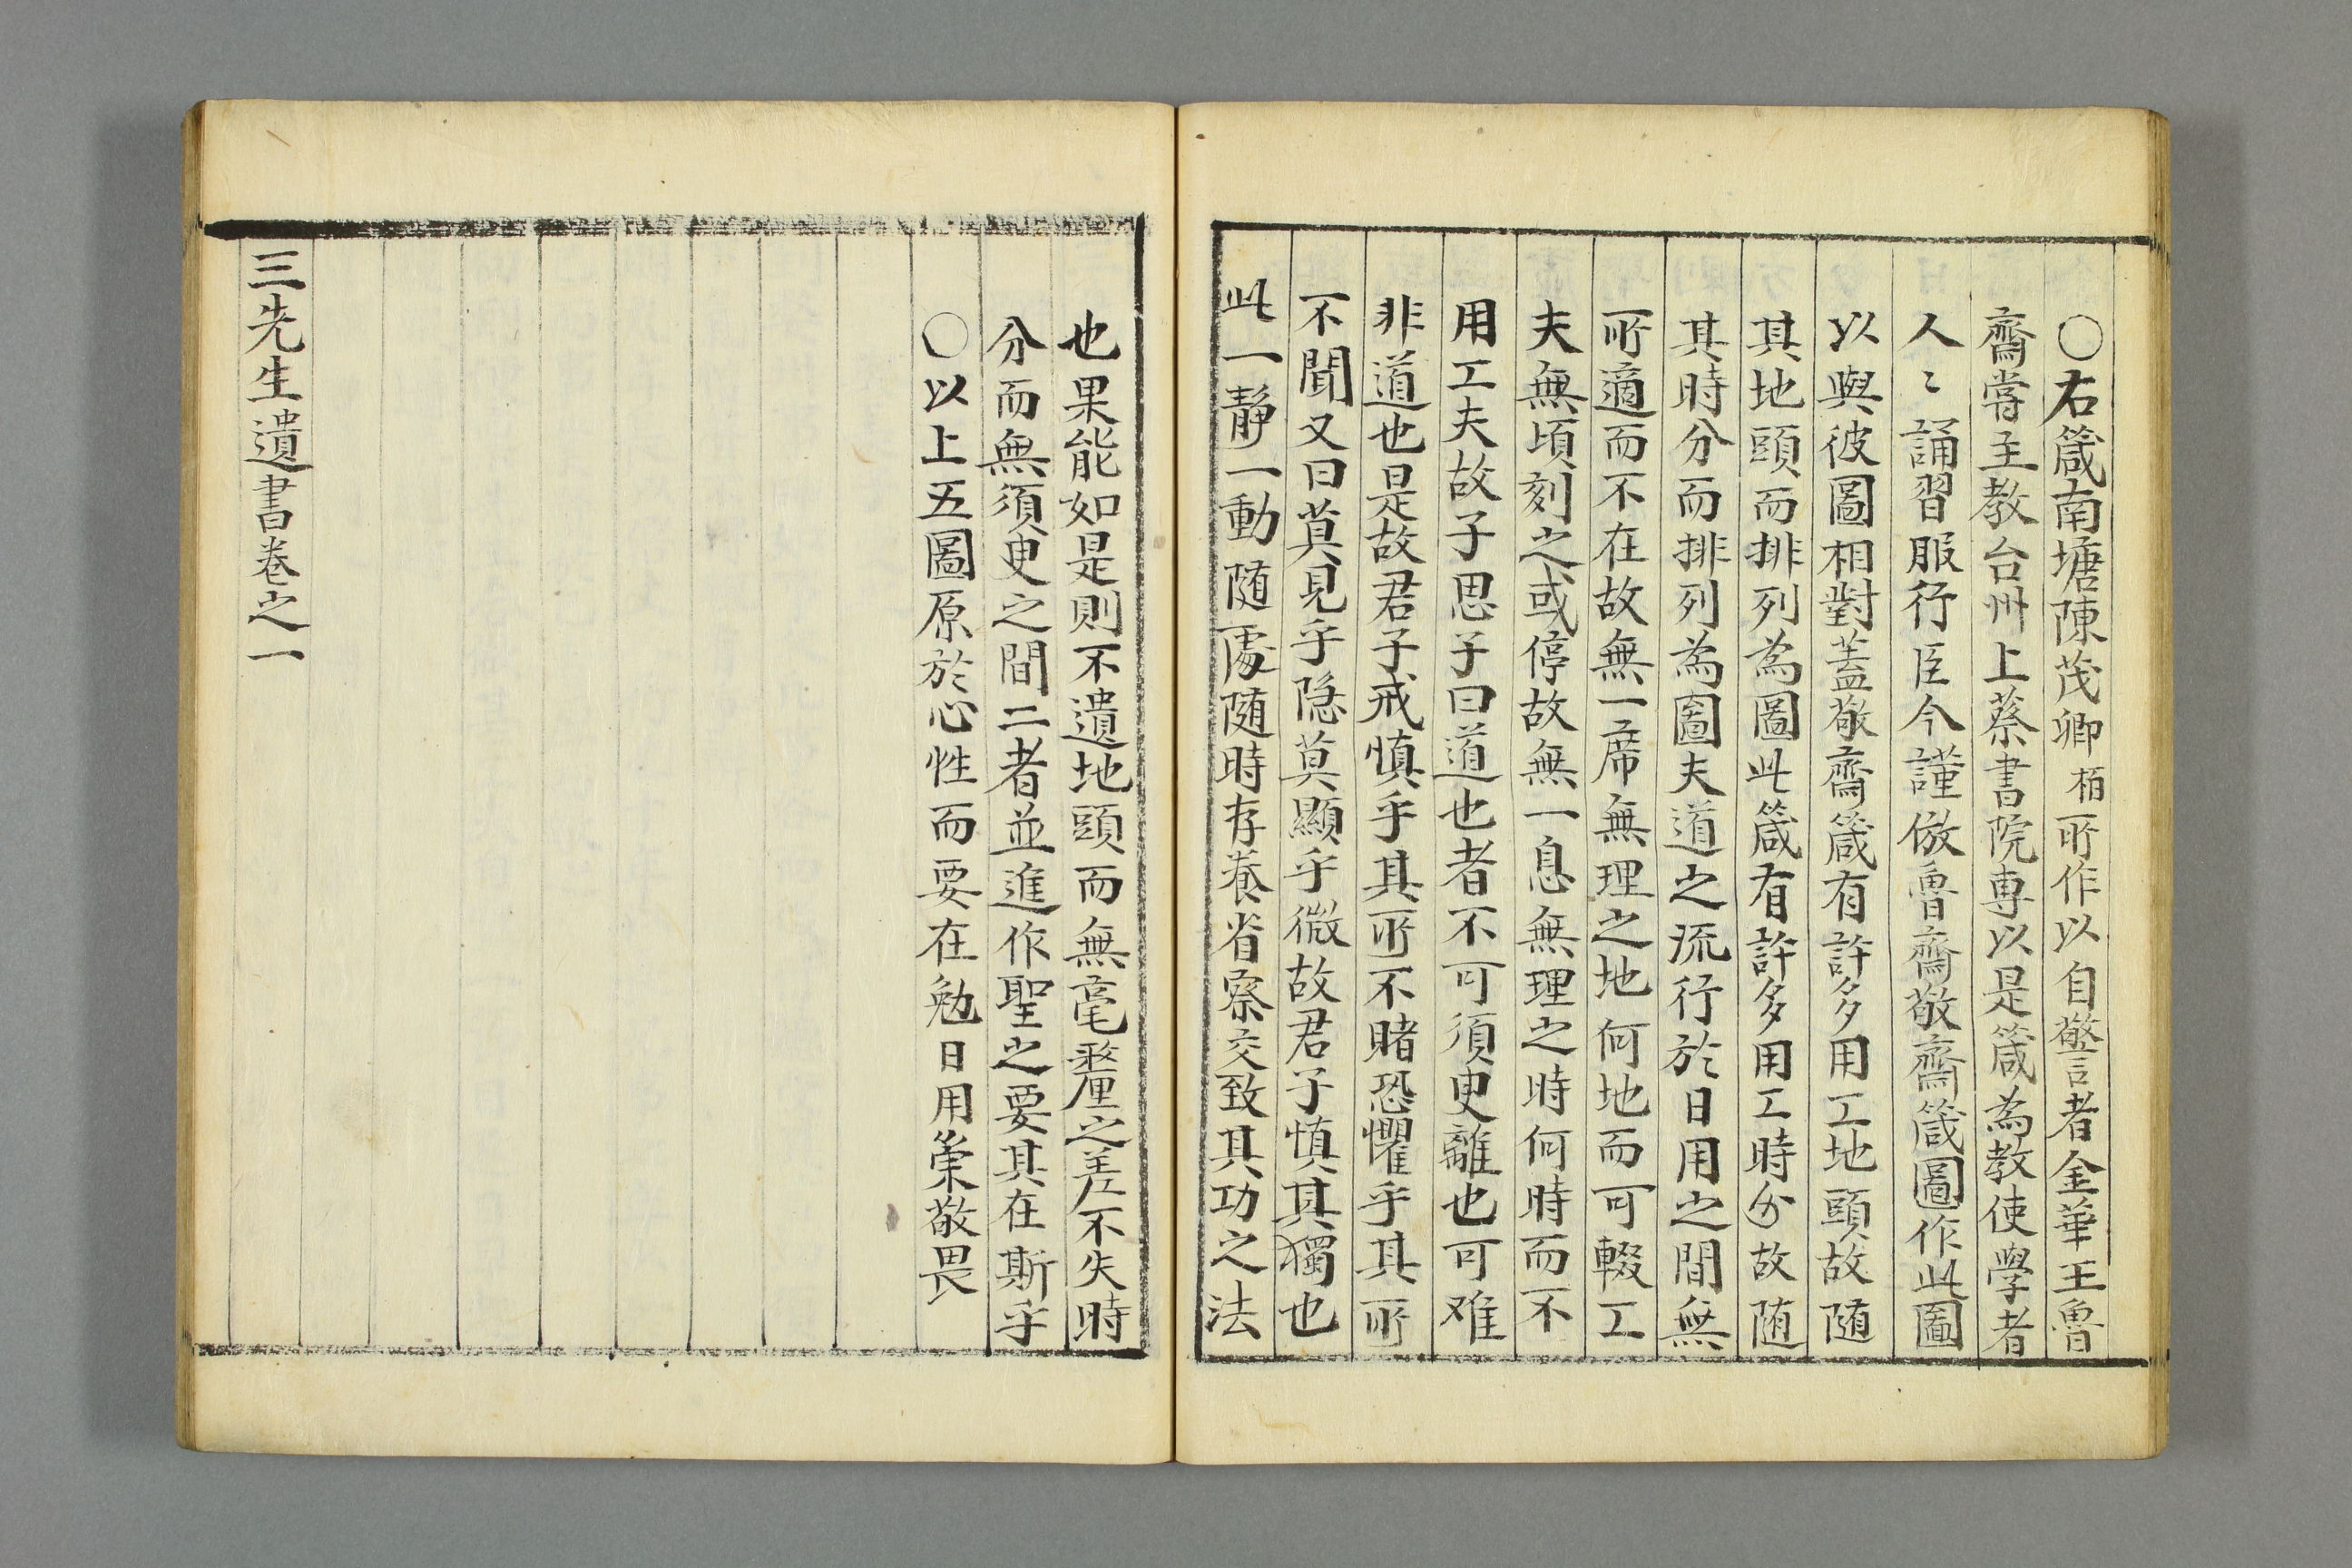 ○右箴南塘陳茂卿栢所作以自警者金華王魯
齋嘗主教台州上蔡書院專以是箴為教使學者
人〻誦習服行臣今謹倣魯齋敬齋箴圖作此圖
以與彼圖相對蓋敬齋箴有許多用工地頭故随
其地頭而排列為圖此箴有許多用工時分故随
其時分而排列為圖夫道之流行於日用之間無
所適而不在故無一席無理之地何地而可輟工
夫無頃刻之或停故無一息無理之時何時而不
用工夫故子思子曰道也者不可須臾離也可难
非道也是故君子戒慎乎其所不睹恐懼乎其所
不聞又曰莫見乎隐莫顯乎微故君子慎其獨也
此一靜一動随處随時存養省察交致其功之法
也果能如是則不遺地頭而無毫釐之差不失時
分而無須臾之間二者並進作聖之要其在斯乎
○以上五圖原於心性而要在勉日用崇敬畏
三先生遺書卷之一